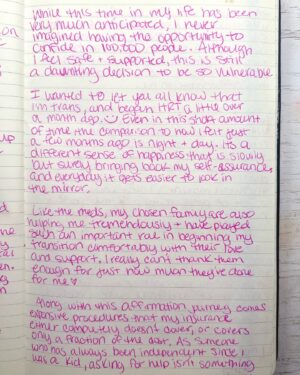 While this time in my life has been
very much anticipated, I never
imagined having the opportunity to
confide in 100,000 people. Although
I feel safe + supported, this is still
a daunting decision to be so vulnerable
I wanted to let you all know that
I'm trans, and began HRT a little over
a month ago. Even in this short amount
of time the comparison to how I felt just
a few months ago is night + day. Its a
different sense of happiness that is slowly
but surely bringing back my self-assurance,
and everyday it gets easier to look in
the mirror.
Like the meds, my chosen family are also
helping me tremendously + have played
such an important role in beginning my
transition comfortably with their love
and support. I really can't thank them
enough for just how much they've done
for me ♥
Along with this affirmation journey comes
expensive procedures that my insurance
either completely doesn't cover, or covers
only a fraction of the cost. As someone
who has always been independent since I
was a kid, asking for help isn't something